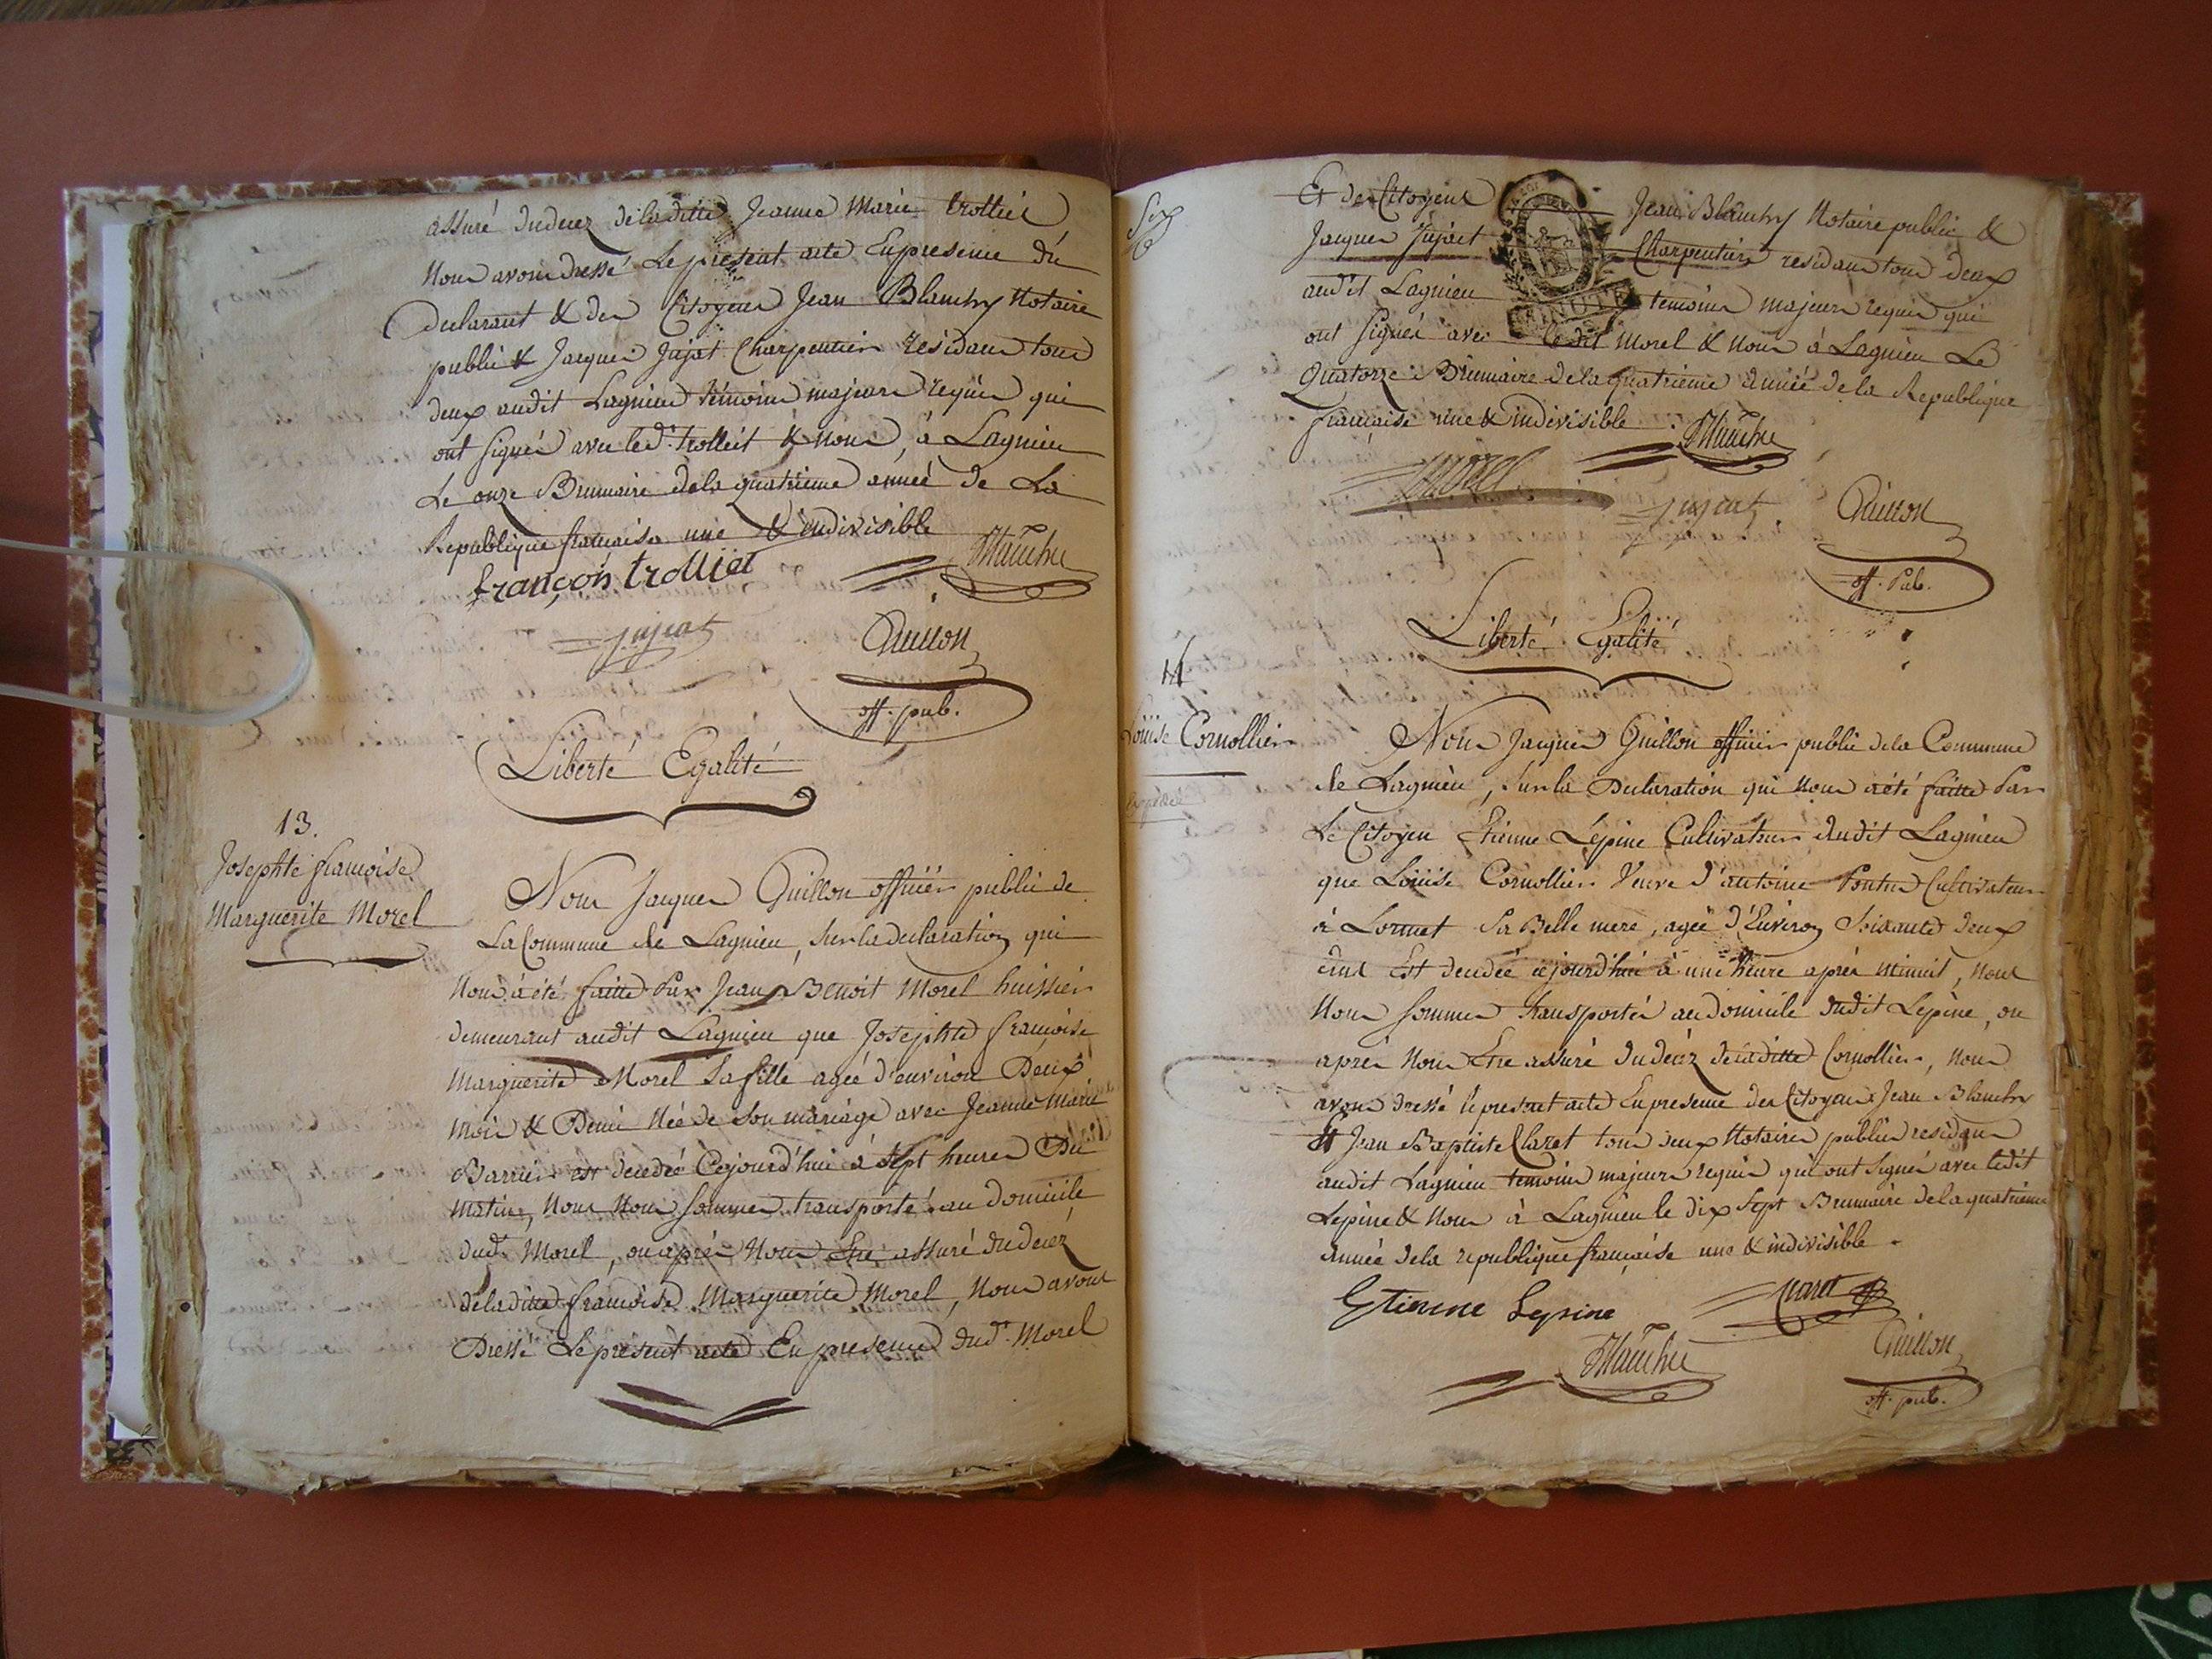 assuré du decez de la ditte Jeanne Marie trolliet
Nous avons dressé Le présent acte En presence du
Declarant & des Citoyens Jean Blanchy Notaire
public & Jacques Jujat Charpentier residans tous
deux audit Lagnieu témoins majeurs requis qui
ont signés avec led. trolliet & Nous, à Lagnieu
Le onze Brumaire de la quatrieme année de La
Republique francaise une & indivisible
françois trolliet
Blanchy
Jujat
Guillon
off. pub.
Liberté Egalité
13.
Josephte francoise
Marguerite Morel
Nous Jacques Guillon officier public de
La Commune de Lagnieu, sur la declaration qui
Nous a été faitte Par Jean Benoit Morel huissier
demeurant audit Lagnieu que Josephte francoise
Marguerite Morel sa fille agée d'environ Deux
mois & Demi Née de son mariage avec Jeanne Marie
Barrier est decedée Cejourd'hui à sept heures Du
matin, Nous Nous sommes transporté au domicile
dud. Morel, ou après Nous Etre assuré du decez
de la ditte francoise Marguerite Morel, Nous avons
Dressé Le présent acte En presence dud. Morel
Six
Et des Citoyens Jean Blanchy Notaire public &
Jacques Jujat Charpentier residans tous deux
audit Lagnieu temoins majeurs requis qui
ont signés avec ledit Morel & Nous à Lagnieu Le
Quatorze Brumaire de la quatrieme année de la Republique
francaise une & indivisible.
Blanchy
Morel
Jujat
Guillon
off. Pub.
Liberté Egalité
14
Louise Cornollier
Nous Jacques Guillon officier public de la Commune
de Lagnieu, sur la Declaration qui Nous a été faitte Par
Le Citoyen Etienne Lépine Cultivateur dudit Lagnieu
que Louise Cornollier Veuve d'antoine Cultivateur
à Lormet sa Belle mere, agée d'Environ Soixante deux
ans Est decedée cejourd'hui à une heure après minuit, Nous
Nous sommes transportés au domicile dudit Lepine, ou
après Nous Etre assuré du decez de la ditte Cornollier, Nous
avons dressé le present acte En presence des Citoyens Jean Blanchy
Et Jean Baptiste Claret tous deux Notaires publics residans
audit Lagnieu temoins majeurs requis qui ont signés avec ledit
Lepine & Nous à Lagnieu le dix Sept Brumaire de la quatrieme
année de la republique francaise une & indivisible.
Etienne Lepine
Claret
Blanchy
Guillon
off. pub.